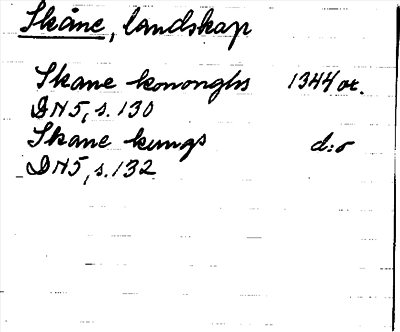 Skåne, landskap
Skane kononghs 1344 or.
DN5, s. 130
Skane kungs d:o
DN5, s. 132